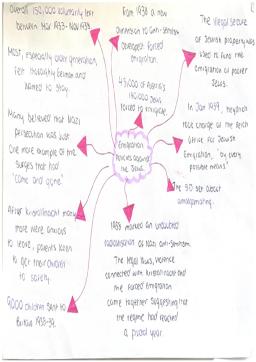 Overall 150,000 voluntarily left
between Mar 1933 - Nov 1938.
Most, especially older generation,
felt thoroughly German and
wanted to stay.
Many believed that Nazi
persecution was just
one more example of the
surges that had
"come and gone".
After Kristallnacht many
more were anxious
to leave, parents keen
to get their children
to safety.
9,000 children sent to
Britain 1938-39.
From 1938 a new
dimension to anti-semitism
developed - forced
emigration.
45,000 of Austria's
180,000 Jews
forced to emigrate.
Emigration
policies around
the Jews.
1938 marked an undoubted
radicalisation of Nazi anti-semitism.
The legal laws, violence
connected with Kristallnacht and
the forced emigration
came together suggesting that
the regime had reached
a pivotal year.
The illegal seizure
of Jewish property was
used to fund the
emigration of poorer
Jews.
In Jan 1939, Heydrich
took charge of the Reich
Office for Jewish
Emigration, "by every
possible means."
The SD set about
amalgamating.